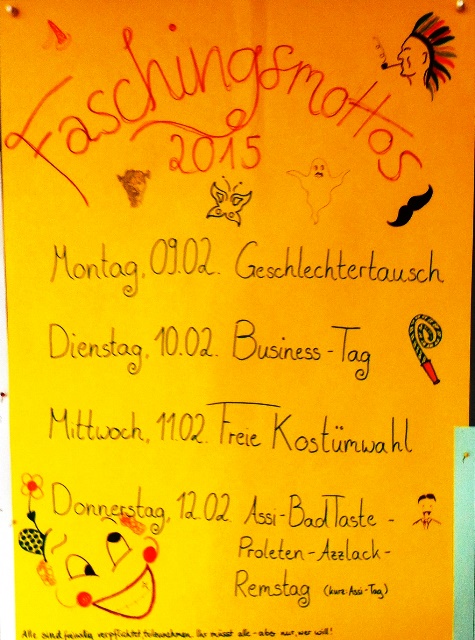 Faschingsmottos
2015
Montag, 09.02. Geschlechtertausch
Dienstag, 10.02. Business-Tag
Mittwoch, 11.02. Freie Kostümwahl
Donnerstag, 12.02. Assi-BadTaste-
Proleten-Azzlack-
Remstag (kurz: Assi-Tag)
Alle sind freiwillig verpflichtet teilzunehmen. Ihr müsst alle - aber nur, wer will!